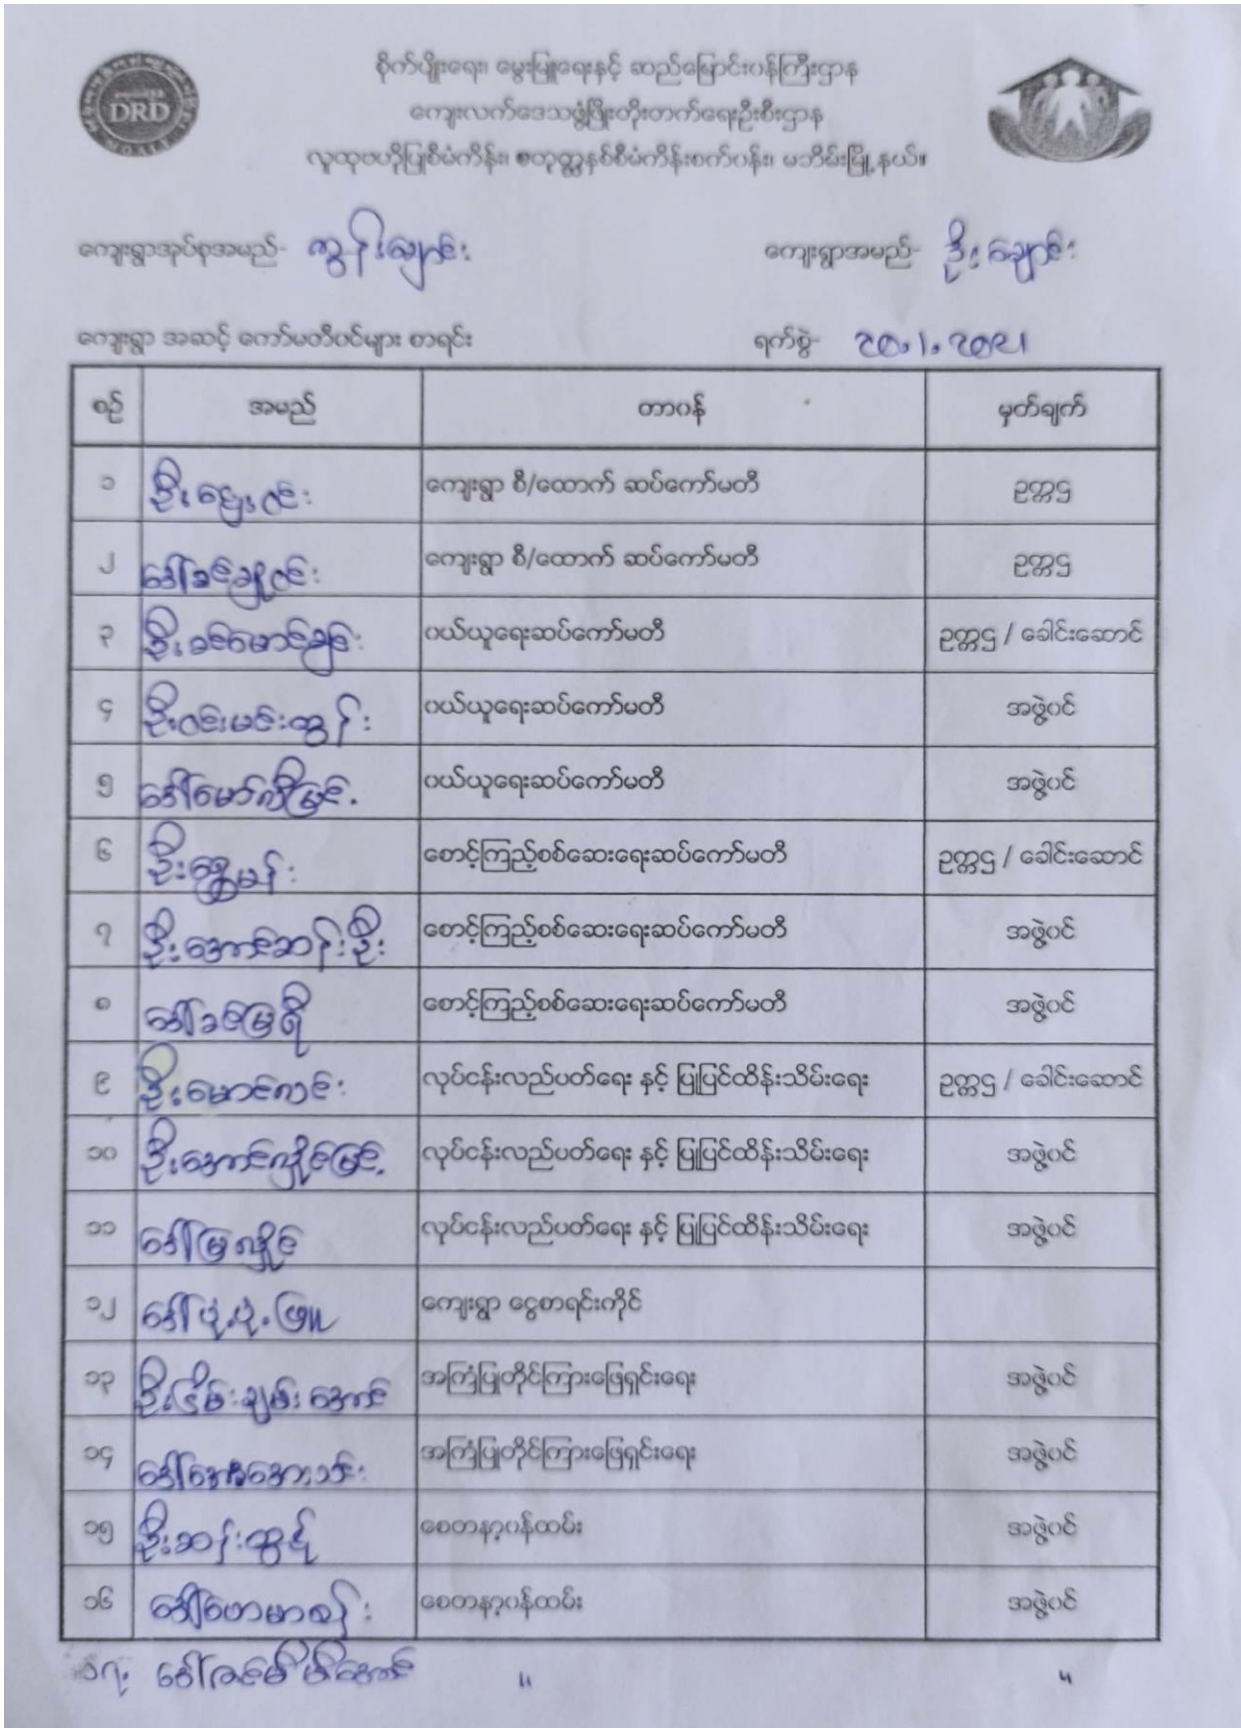 DRD
စိုက်ပျိုးရေး၊ မွေးမြူရေးနှင့် ဆည်မြောင်းဝန်ကြီးဌာန
ကျေးလက်ဒေသဖွံ့ဖြိုးတိုးတက်ရေးဦးစီးဌာန
လူထုဗဟိုပြုစီမံကိန်း၊ စတုတ္ထနှစ်စီမံကိန်းစက်ဝန်း၊ မဘိမ်းမြို့နယ်။
ကျေးရွာအုပ်စုအမည်- ကွန်းချောင်း ကျေးရွာအမည်- ဦးချောင်း
ကျေးရွာ အဆင့် ကော်မတီဝင်များ စာရင်း ရက်စွဲ- ၁၀.၁.၂၀၂၁
စဉ် အမည် တာဝန် မှတ်ချက်
၁ ဦးဌေးဝင်း ကျေးရွာ စီ/ထောက် ဆပ်ကော်မတီ ဥက္ကဌ
၂ ဒေါ်ခင်ချိုဝင်း ကျေးရွာ စီ/ထောက် ဆပ်ကော်မတီ ဥက္ကဌ
၃ ဦးခင်မောင်ချင်း ဝယ်ယူရေးဆပ်ကော်မတီ ဥက္ကဌ / ခေါင်းဆောင်
၄ ဦးဝင်းမင်းထွန်း ဝယ်ယူရေးဆပ်ကော်မတီ အဖွဲ့ဝင်
၅ ဒေါ်မော်လီမြင့် ဝယ်ယူရေးဆပ်ကော်မတီ အဖွဲ့ဝင်
၆ ဦးရွှေမန်း စောင့်ကြည့်စစ်ဆေးရေးဆပ်ကော်မတီ ဥက္ကဌ / ခေါင်းဆောင်
၇ ဦးအောင်ဆန်းဦး စောင့်ကြည့်စစ်ဆေးရေးဆပ်ကော်မတီ အဖွဲ့ဝင်
၈ ဒေါ်ခင်မြရီ စောင့်ကြည့်စစ်ဆေးရေးဆပ်ကော်မတီ အဖွဲ့ဝင်
၉ ဦးမောင်ကင်း လုပ်ငန်းလည်ပတ်ရေး နှင့် ပြုပြင်ထိန်းသိမ်းရေး ဥက္ကဌ / ခေါင်းဆောင်
၁၀ ဦးအောင်ကျိုင်မြင့် လုပ်ငန်းလည်ပတ်ရေး နှင့် ပြုပြင်ထိန်းသိမ်းရေး အဖွဲ့ဝင်
၁၁ ဒေါ်မြလှိုင် လုပ်ငန်းလည်ပတ်ရေး နှင့် ပြုပြင်ထိန်းသိမ်းရေး အဖွဲ့ဝင်
၁၂ ဒေါ်ပုံ့ပုံ့ဖြူ ကျေးရွာ ငွေစာရင်းကိုင်
၁၃ ဦးငြိမ်းချမ်းအောင် အကြံပြုတိုင်ကြားဖြေရှင်းရေး အဖွဲ့ဝင်
၁၄ အကြံပြုတိုင်ကြားဖြေရှင်းရေး အဖွဲ့ဝင်
၁၅ ဦးဆန်းထွဋ် စေတနာ့ဝန်ထမ်း အဖွဲ့ဝင်
၁၆ ဒေါ်ဟေမာစန်း စေတနာ့ဝန်ထမ်း အဖွဲ့ဝင်
၁၇. ဒေါ်ခင်မီမီအောင် " "